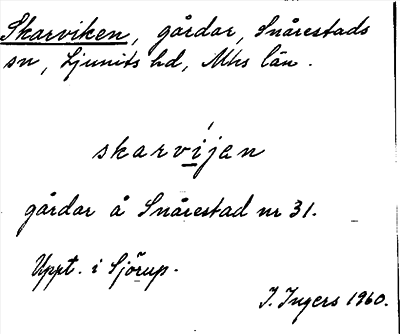 Skarviken, gårdar, Snårestads
sn, Ljunits hd, Mhs län.
skarvíjan
gårdar å Snårestad nr 31.
Uppt. i Sjörup.
I. Ingers 1960.